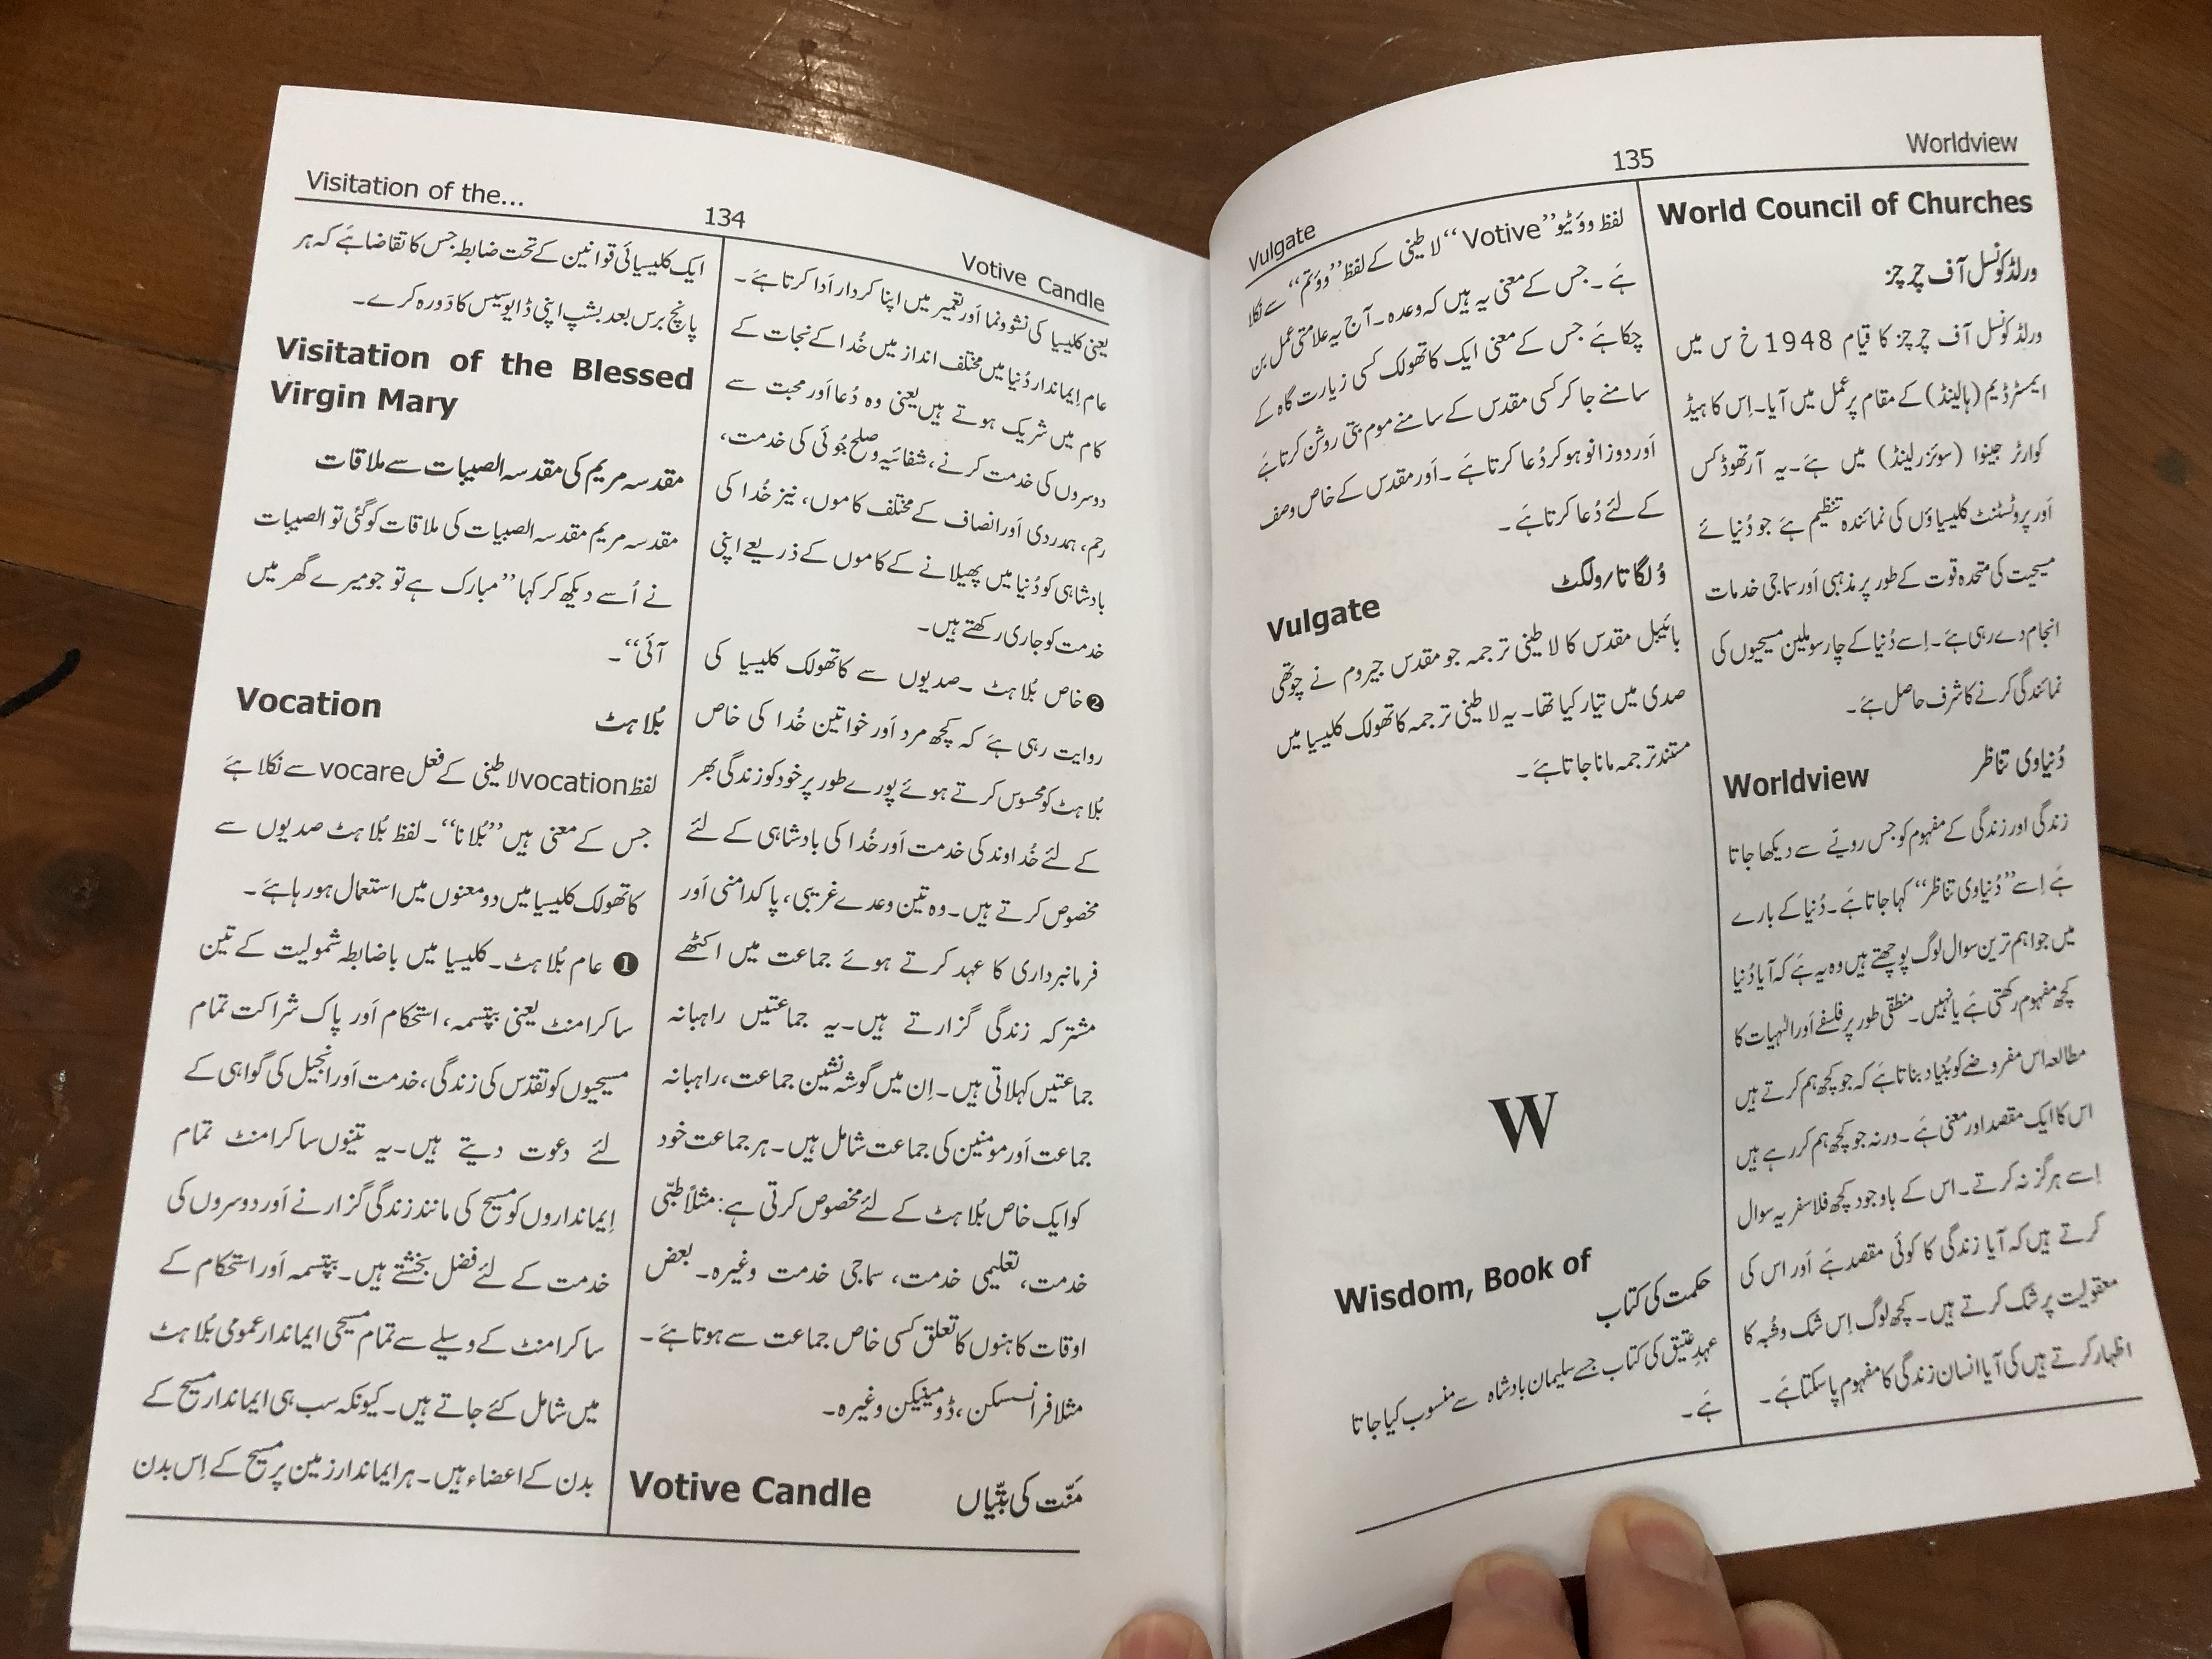 Visitation of the...
134
Votive Candle
ایک کلیسیائی قوانین کے تحت ضابطہ جس کا تقاضا ہَے کہ ہر
پانچ برس بعد بشپ اپنی ڈایوسیس کا دَورہ کرے۔
Visitation of the Blessed
Virgin Mary
مقدسہ مریم کی مقدسہ الصبیات سے ملاقات
مقدسہ مریم مقدسہ الصبیات کی ملاقات کو گئی تو الصبیات
نے اُسے دیکھ کر کہا ’’مبارک ہے تو جو میرے گھر میں
آئی‘‘۔
Vocation بُلاہٹ
لفظ vocation لاطینی کے فعل vocare سے نکلا ہَے
جس کے معنی ہیں ’’بُلانا‘‘۔ لفظ بُلاہٹ صدیوں سے
کاتھولک کلیسیا میں دو معنوں میں استعمال ہو رہا ہَے۔
❶ عام بُلاہٹ۔ کلیسیا میں باضابطہ شمولیت کے تین
ساکرامنٹ یعنی بپتسمہ، استحکام اَور پاک شراکت تمام
مسیحیوں کو تقدّس کی زندگی، خدمت اَور انجیل کی گواہی کے
لئے دعوت دیتے ہیں۔ یہ تینوں ساکرامنٹ تمام
اِیمانداروں کو مسیح کی مانند زندگی گزارنے اَور دوسروں کی
خدمت کے لئے فضل بخشتے ہیں۔ بپتسمہ اَور استحکام کے
ساکرامنٹ کے وسیلے سے تمام مسیحی ایماندار عمومی بُلاہٹ
میں شامل کئے جاتے ہیں۔ کیونکہ سب ہی ایماندار مسیح کے
بدن کے اعضاء ہیں۔ ہر ایماندار زمین پر مسیح کے اِس بدن
یعنی کلیسیا کی نشوونما اَور تعمیر میں اپنا کردار اَدا کرتا ہَے۔
عام اِیماندار دُنیا میں مختلف انداز میں خُدا کے نجات کے
کام میں شریک ہوتے ہیں یعنی وہ دُعا اَور محبت سے
دوسروں کی خدمت کرنے، شفائیہ و صلح جُوئی کی خدمت،
رحم، ہمدردی اَور انصاف کے مختلف کاموں، نیز خُدا کی
بادشاہی کو دُنیا میں پھیلانے کے کاموں کے ذریعے اپنی
خدمت کو جاری رکھتے ہیں۔
❷ خاص بُلاہٹ۔ صدیوں سے کاتھولک کلیسیا کی
روایت رہی ہَے کہ کچھ مرد اَور خواتین خُدا کی خاص
بُلاہٹ کو محسوس کرتے ہوئے پورے طور پر خود کو زندگی بھر
کے لئے خُداوند کی خدمت اَور خُدا کی بادشاہی کے لئے
مخصوص کرتے ہیں۔ وہ تین وعدے غریبی، پاکدامنی اَور
فرمانبرداری کا عہد کرتے ہوئے جماعت میں اکٹھے
مشترکہ زندگی گزارتے ہیں۔ یہ جماعتیں راہبانہ
جماعتیں کہلاتی ہیں۔ اِن میں گوشہ نشین جماعت، راہبانہ
جماعت اَور مومنین کی جماعت شامل ہیں۔ ہر جماعت خود
کو ایک خاص بُلاہٹ کے لئے مخصوص کرتی ہے: مثلاً طبّی
خدمت، تعلیمی خدمت، سماجی خدمت وغیرہ۔ بعض
اوقات کاہنوں کا تعلق کسی خاص جماعت سے ہوتا ہَے۔
مثلا فرانسسکن، ڈومینیکن وغیرہ۔
Votive Candle مَنّت کی بتّیاں
Vulgate
135
Worldview
لفظ ووَٹیو ’’Votive‘‘ لاطینی کے لفظ ’’ووَتم‘‘ سے نکلا
ہَے۔ جس کے معنی یہ ہیں کہ وعدہ۔ آج یہ علامتی عمل بن
چکا ہَے جس کے معنی ایک کاتھولک کسی زیارت گاہ کے
سامنے جا کر کسی مقدس کے سامنے موم بتی روشن کرتا ہَے
اَور دوزانو ہو کر دُعا کرتا ہَے۔ اَور مقدس کے خاص وصف
کے لئے دُعا کرتا ہَے۔
Vulgate وُلگاتا/ولگٹ
بائیبل مقدس کا لاطینی ترجمہ جو مقدس جیروم نے چوتھی
صدی میں تیّار کیا تھا۔ یہ لاطینی ترجمہ کاتھولک کلیسیا میں
مستند ترجمہ مانا جاتا ہَے۔
W
Wisdom, Book of
حکمت کی کتاب
عہدِ عتیق کی کتاب جسے سلیمان بادشاہ سے منسوب کیا جاتا
ہَے۔
World Council of Churches
ورلڈ کونسل آف چرچز
ورلڈ کونسل آف چرچز کا قیام 1948 خ س میں
ایمسٹرڈیم (ہالینڈ) کے مقام پر عمل میں آیا۔ اِس کا ہیڈ
کوارٹر جینوا (سوئزرلینڈ) میں ہَے۔ یہ آرتھوڈکس
اَور پروٹسٹنٹ کلیسیاؤں کی نمائندہ تنظیم ہَے جو دُنیائے
مسیحیت کی متحدہ قوت کے طور پر مذہبی اَور سماجی خدمات
انجام دے رہی ہَے۔ اِسے دُنیا کے چار سو ملین مسیحیوں کی
نمائندگی کرنے کا شرف حاصل ہَے۔
Worldview دُنیاوی تناظر
زندگی اور زندگی کے مفہوم کو جس رویّے سے دیکھا جاتا
ہَے اِسے ’’دُنیاوی تناظر‘‘ کہا جاتا ہَے۔ دُنیا کے بارے
میں جو اہم ترین سوال لوگ پوچھتے ہیں وہ یہ ہَے کہ آیا دُنیا
کچھ مفہوم رکھتی ہَے یا نہیں۔ منطقی طور پر فلسفے اَور الٰہیات کا
مطالعہ اس مفروضے کو بُنیاد بناتا ہَے کہ جو کچھ ہم کرتے ہیں
اس کا ایک مقصد اور معنی ہَے۔ ورنہ جو کچھ ہم کر رہے ہیں
اِسے ہرگز نہ کرتے۔ اس کے باوجود کچھ فلاسفر یہ سوال
کرتے ہیں کہ آیا زندگی کا کوئی مقصد ہَے اَور اس کی
معقولیت پر شک کرتے ہیں۔ کچھ لوگ اِس شک و شُبہ کا
اظہار کرتے ہیں کی آیا انسان زندگی کا مفہوم پا سکتا ہَے۔